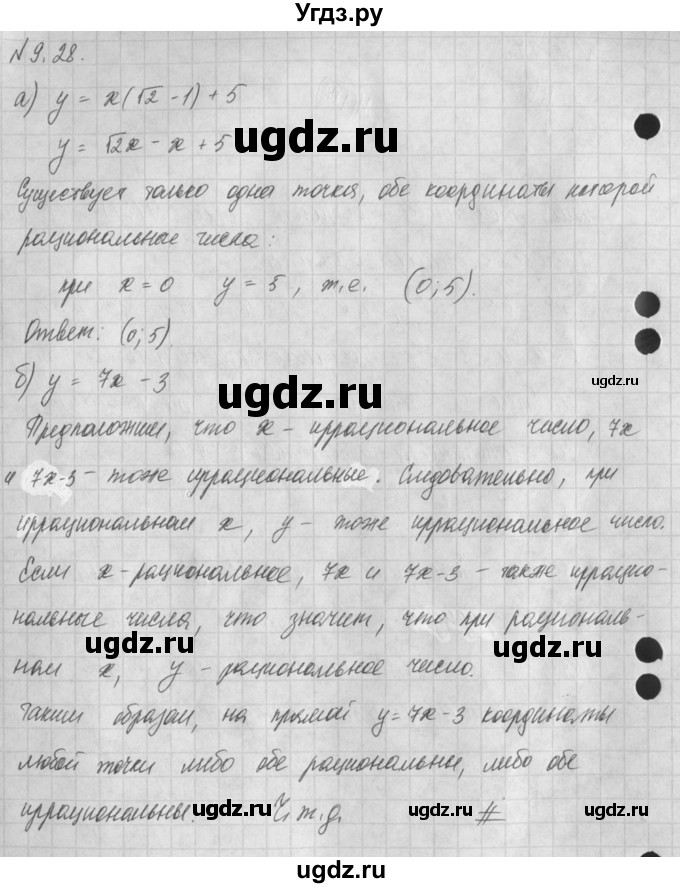 Угдз.ру
N 9.28.
а) y = x(√2 - 1) + 5
y = √2x - x + 5
ugdz.ru
Существует только одна точка, обе координаты которой
рациональные числа:
ugdz.ru
при x = 0 y = 5, т.е. (0; 5).
Ответ: (0; 5).
ugdz.ru
б) y = 7x - 3
ugdz.ru
Предположим, что x - иррациональное число, 7x
и 7x-3 - тоже иррациональные. Следовательно, при
иррациональном x, y - тоже иррациональное число.
Если x - рациональное, 7x и 7x-3 - также иррацио-
нальные числа, что значит, что при рациональ-
ugdz.ru
ugdz.ru
ном x, y - рациональное число.
Таким образом, на прямой y = 7x - 3 координаты
любой точки либо обе рациональны, либо обе
иррациональны. Ч.т.д. #
ugdz.ru
ugdz.ru
ugdz.ru
ugdz.ru